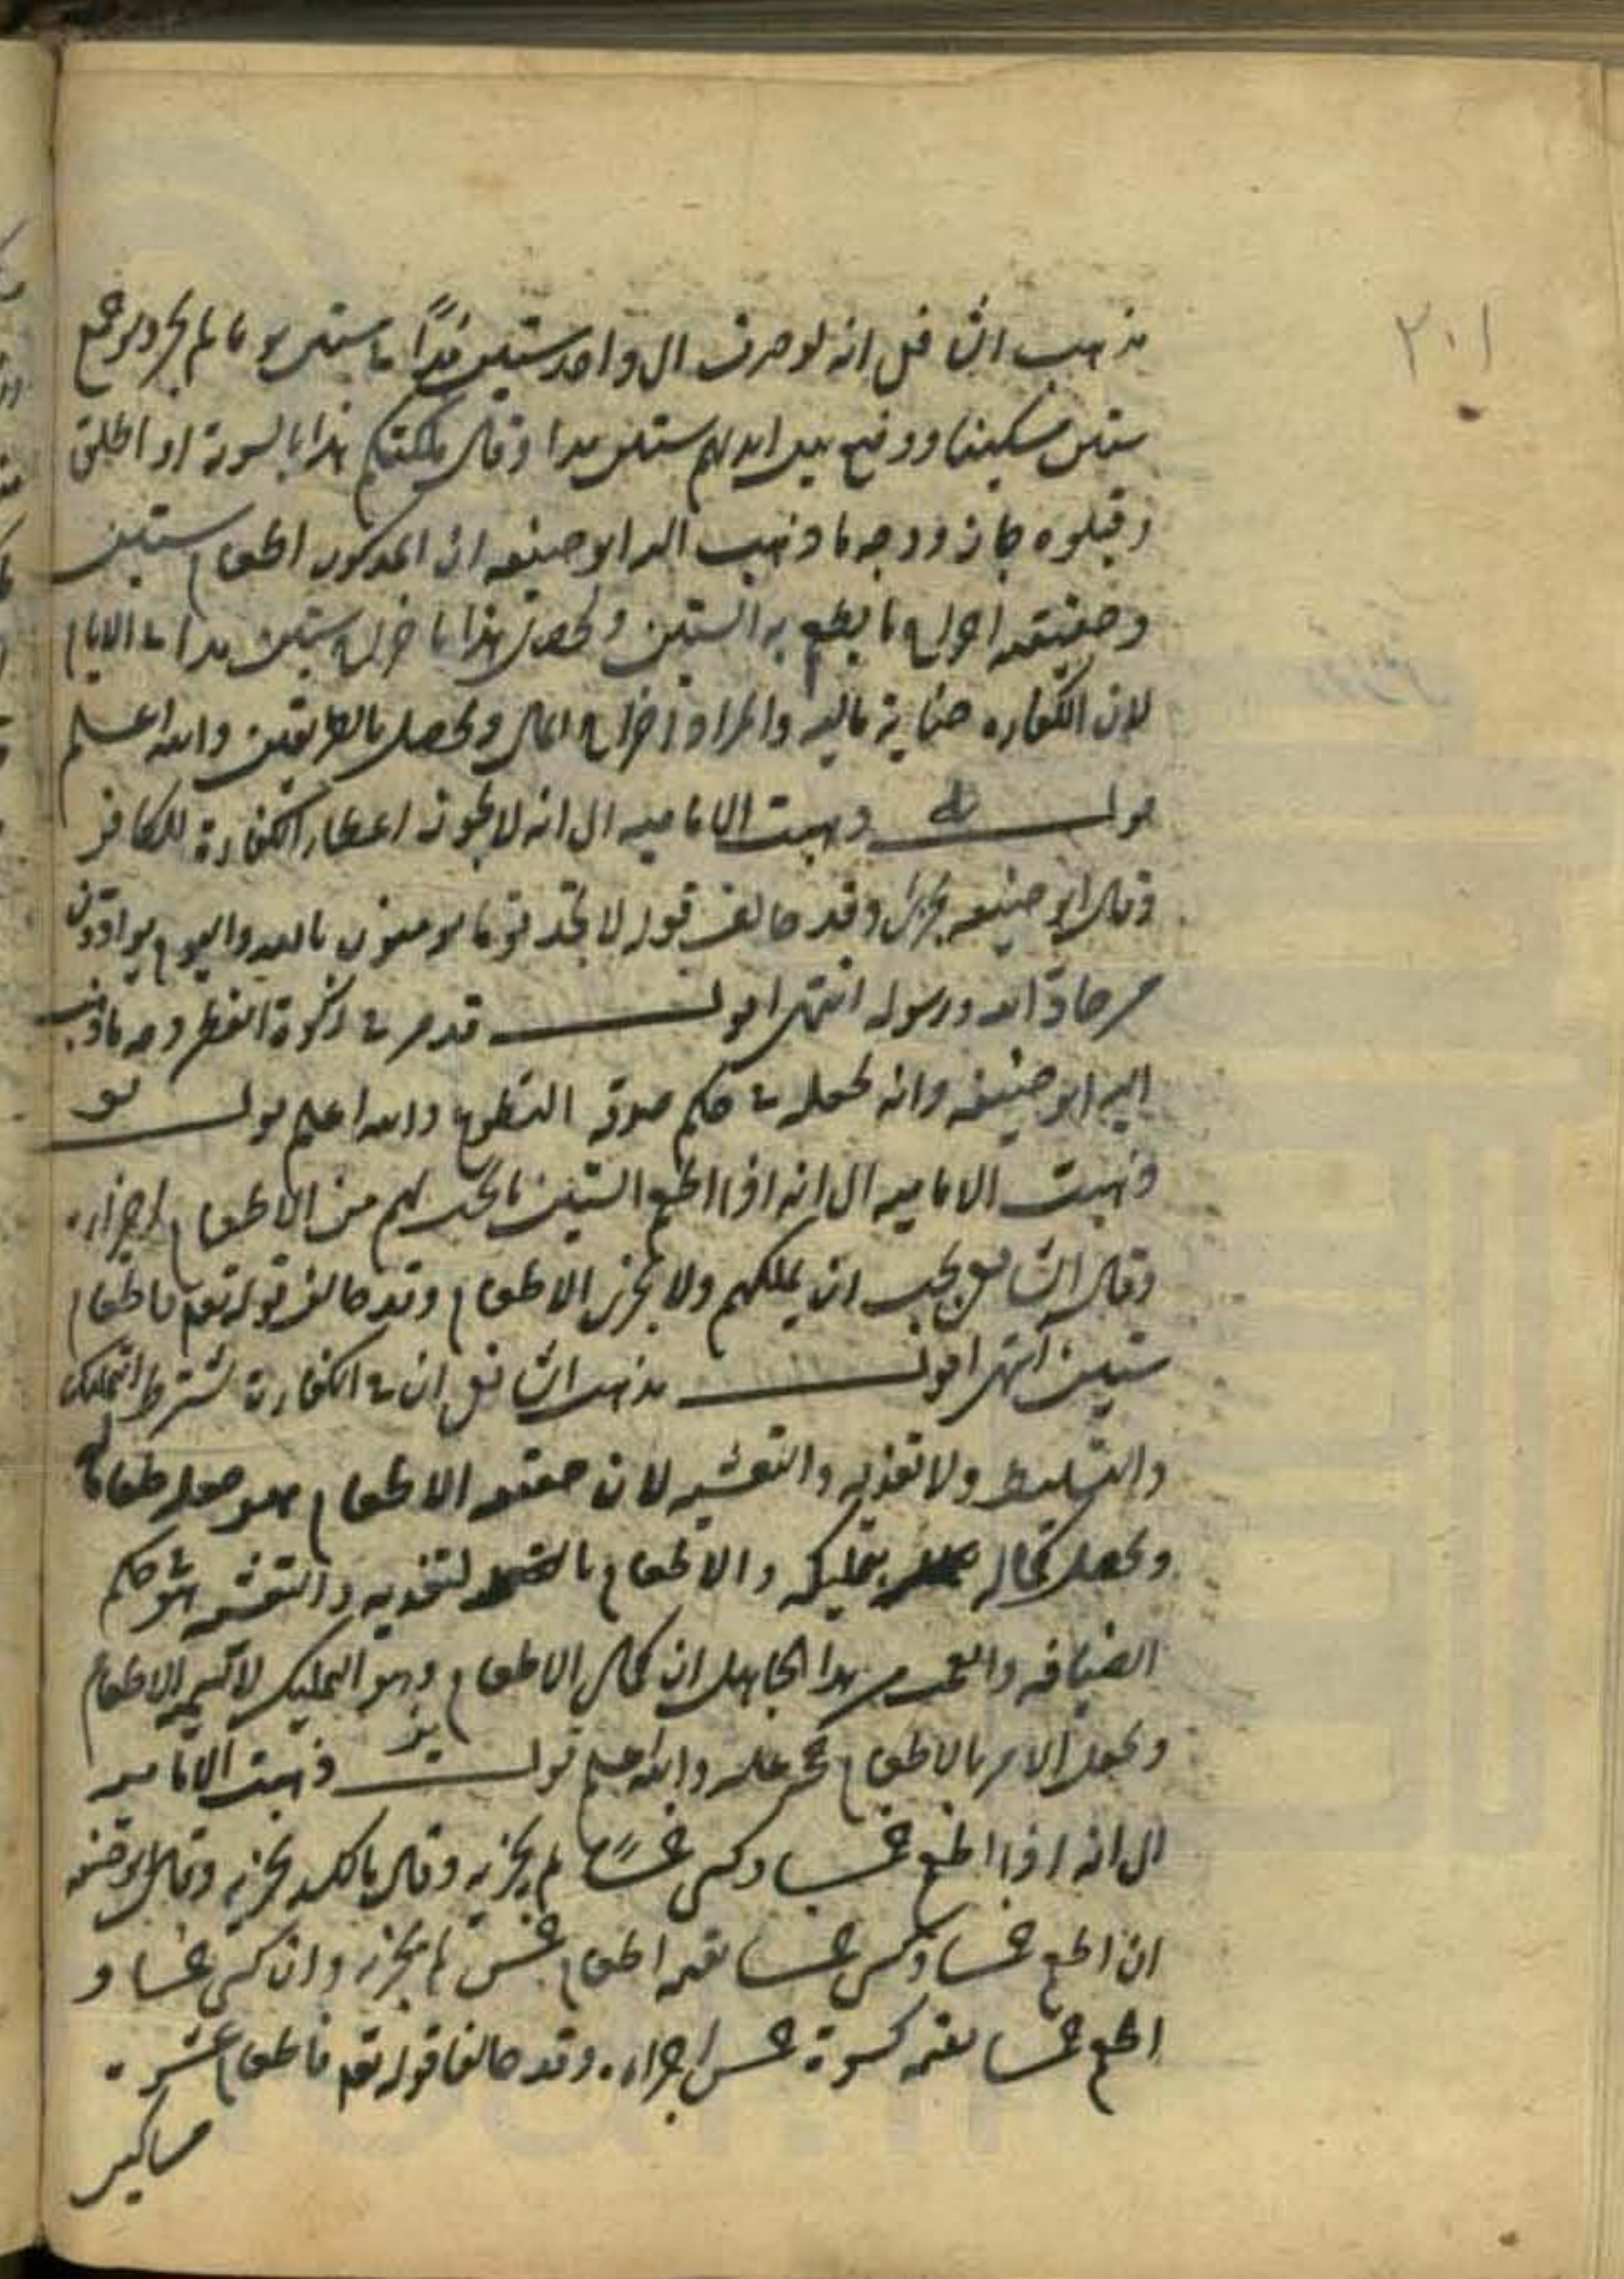 ٢٠١
مذهب الشافعي انه لو صرف الى واحد ستين مدًا في ستين يوما لم يجز ولو جمع
ستين مسكينا ووضع بين ايديهم ستين مدا وقال ملكتكم هذا بالسوية او اطلق
وقبلوه جاز ووجه ما ذهب اليه ابو حنيفه ان المذكور اطعام ستين
وحقيقته اخراج ما يطعم به الستين ويحصل هذا باخراج ستين مدا في الايام
لان الكفاره جناية ماليه والمراد اخراج المال ويحصل بالطريقين والله اعلم
قوله ذهبت الاماميه الى انه لا يجوز اعطاء الكفارة للكافر
وقال ابو حنيفه يجزئ وقد خالف قوله لا تجد قوما يومنون بالله واليوم يوادون
من حاد الله ورسوله انتهى اقول قد مر في زكوة الفطر وجه ما ذهب
اليه ابو حنيفه وانه يجعله في حكم صدقة التطوع والله اعلم قوله يو
ذهبت الاماميه الى انه اذا اطعم الستين ما يجب لهم من الاطعام اجزاه
وقال الشافعي يجب ان يملكهم ولا يجزى الاطعام وقد خالف قوله تعم فاطعام
ستين انتهى اقول مذهب الشافعي ان في الكفارة يشترط التمليك
والتسليط ولا تغذيه والتعشيه لان حقيقه الاطعام هو جعله طعاما له
ويحصل كماله بتمليكه والاطعام بالتغذيه والتعشيه هو حكم
الضيافه والعجب من هذا الجاهل ان كمال الاطعام وهو التمليك لا يسميه الاطعام
ويجعل الامر بالاطعام حجه عليه والله اعلم قوله يز ذهبت الاماميه
الى انه اذا اطعم خمسا وكسى خمسًا لم يجزيه وقال مالك يجزيه وقال ابو حنيفه
ان اطعم خمسا وكسى خمسا بقيمه اطعام خمس لم يجزه وان كسى خمسا و
اطعم خمسا بقيمه كسوة خمس اجزاه وقد خالفا قوله تعم فاطعام عشرة
مساكين